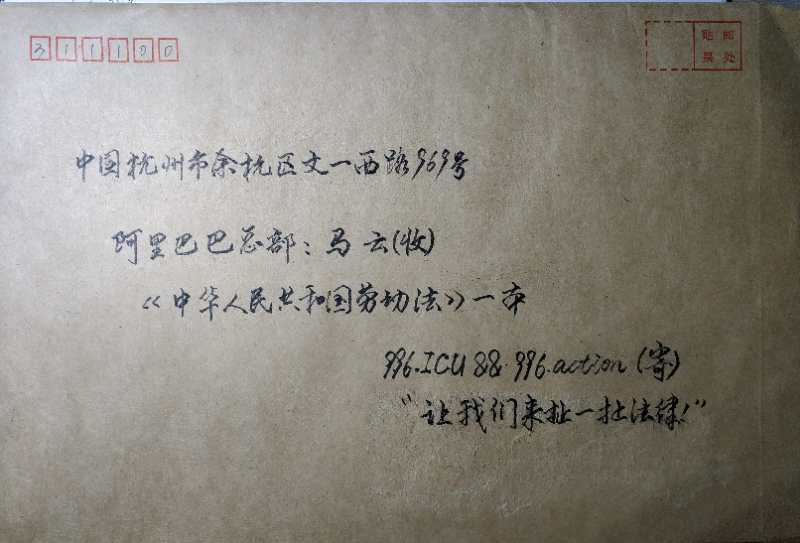 311100
贴邮
票处
中国杭州市余杭区文一西路969号
阿里巴巴总部：马云(收)
《中华人民共和国劳动法》一本
996.ICU && 996.action (寄)
“让我们来扯一扯法律！”